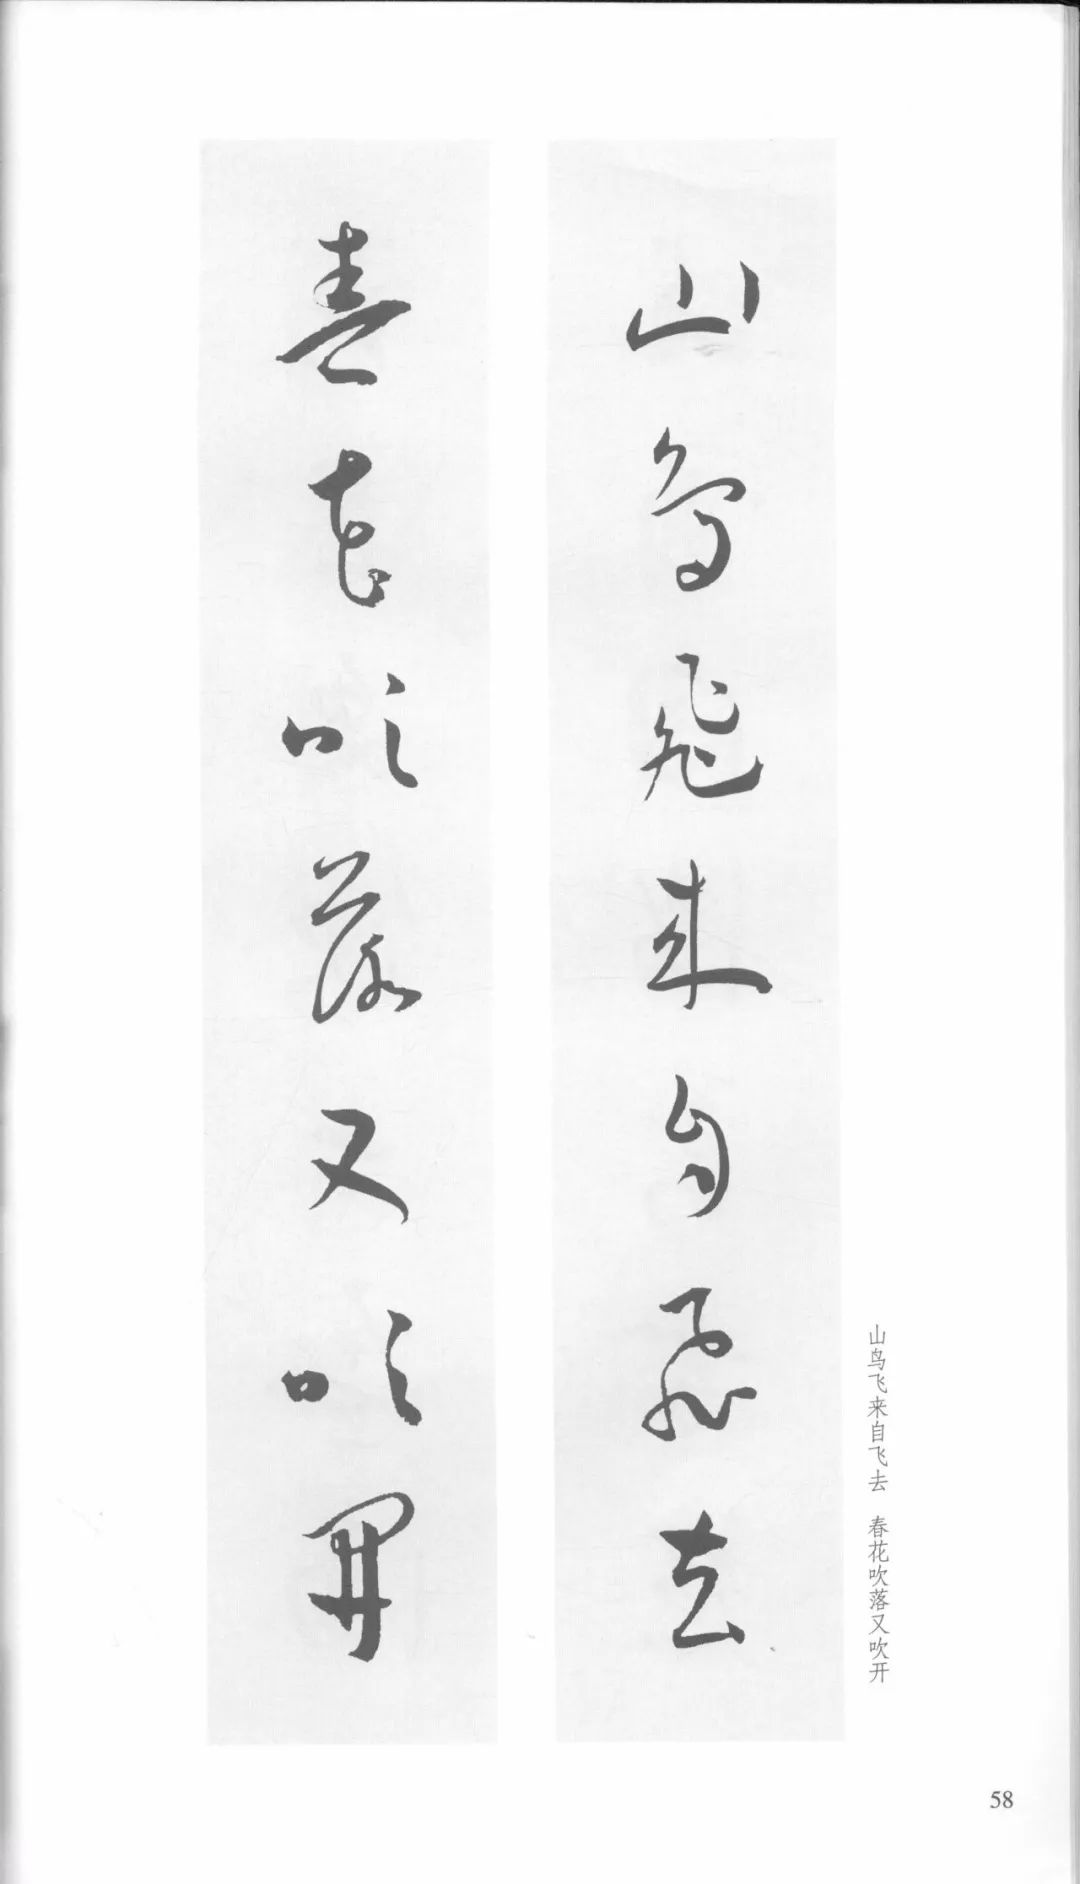 山鳥飛来自飛去
春花吹落又吹開
山鸟飞来自飞去 春花吹落又吹开
58